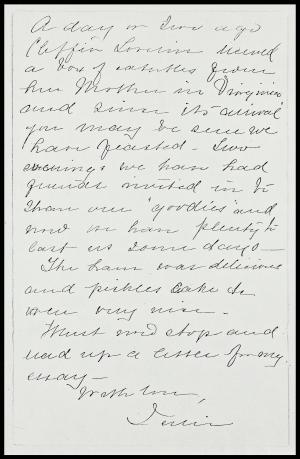 A day or two ago
received
a box of eatables from
her Mother in Virginia
and since its arrival
you may be sure we
have feasted - Two
evenings we have had
friends invited in to
share our "goodies" and
now we have plenty to
last us some days -
The ham was delicious
and pickles cake &c
were very nice.
Must now stop and
read up a little for my
essay -
With love,